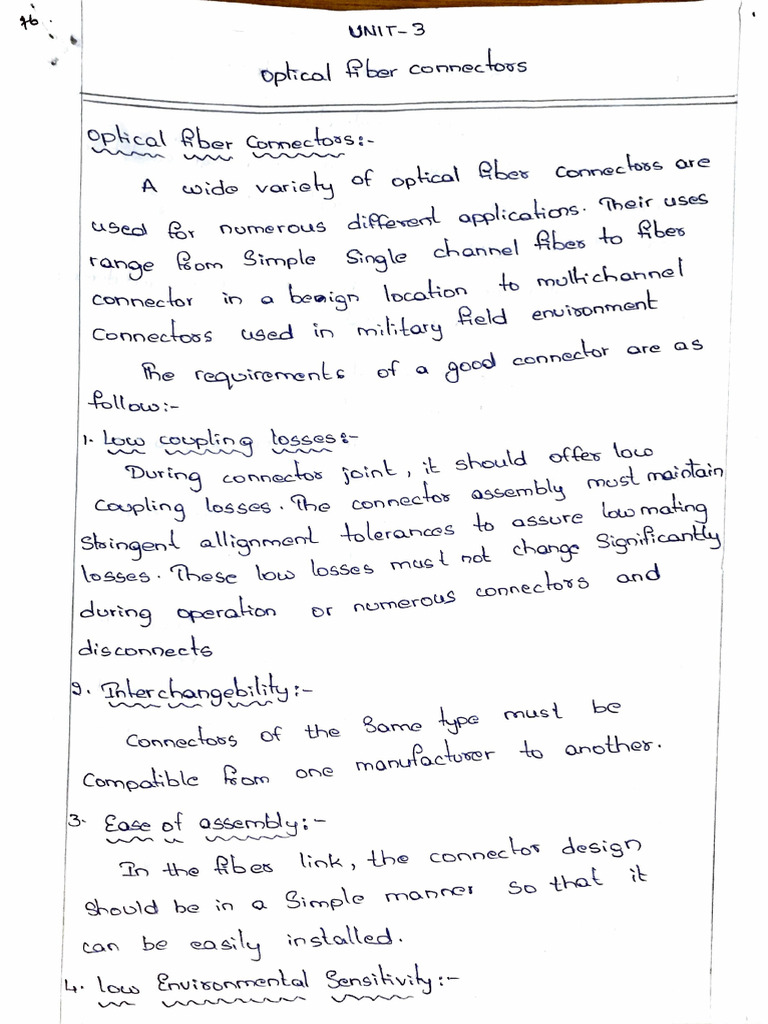 76.
UNIT-3
Optical fiber connectors
Optical fiber Connectors:-
A wide variety of optical fiber connectors are
used for numerous different applications. Their uses
range from Simple Single channel fiber to fiber
connector in a benign location to multichannel
connectors used in military field environment
The requirements of a good connector are as
follow:-
1. Low coupling losses:-
During connector joint, it should offer low
coupling losses. The connector assembly must maintain
stringent allignment tolerances to assure low mating
losses. These low losses must not change Significantly
during operation or numerous connectors and
disconnects
2. Interchangebility:-
Connectors of the Same type must be
Compatible from one manufacturer to another.
3. Ease of assembly:-
In the fiber link, the connector design
should be in a Simple manner so that it
can be easily installed.
4. low Environmental Sensitivity:-